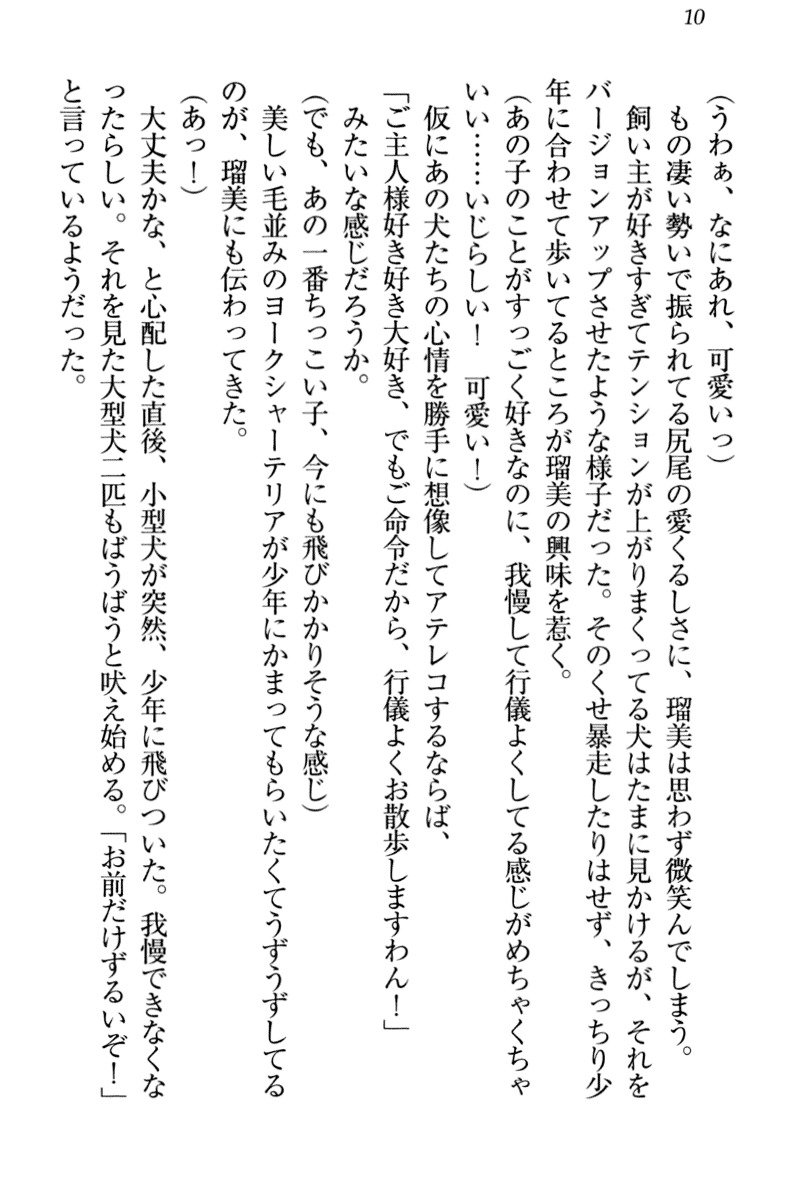 10
(うわぁ、なにあれ、可愛いっ)
もの凄い勢いで振られてる尻尾の愛くるしさに、瑠美は思わず微笑んでしまう。
飼い主が好きすぎてテンションが上がりまくってる犬はたまに見かけるが、それを
バージョンアップさせたような様子だった。そのくせ暴走したりはせず、きっちり少
年に合わせて歩いてるところが瑠美の興味を惹く。
(あの子のことがすっごく好きなのに、我慢して行儀よくしてる感じがめちゃくちゃ
いい……いじらしい！　可愛い！)
仮にあの犬たちの心情を勝手に想像してアテレコするならば、
「ご主人様好き好き大好き、でもご命令だから、行儀よくお散歩しますわん！」
みたいな感じだろうか。
(でも、あの一番ちっこい子、今にも飛びかかりそうな感じ)
美しい毛並みのヨークシャーテリアが少年にかまってもらいたくてうずうずしてる
のが、瑠美にも伝わってきた。
(あっ！)
大丈夫かな、と心配した直後、小型犬が突然、少年に飛びついた。我慢できなくな
ったらしい。それを見た大型犬二匹もばうばうと吠え始める。「お前だけずるいぞ！」
と言っているようだった。